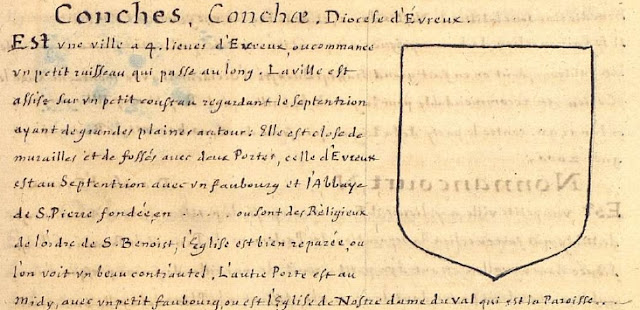 Conches, Conchæ, Diocese d'Évreux
Est vne ville à 4. lieues d'Evreux, ou commance
vn petit ruisseau qui passe au long. La ville est
assise sur vn petit coustau regardant le septentrion
ayant de grandes plaines autour: Elle est close de
murailles et de fossés avec deux Portes, celle d'Evreux
est au Septentrion avec vn faubourg et l'Abbaye
de S. Pierre fondée, en . . . . . . . ou sont des Réligieux
de l'ordre de S. Benoist, l'Eglise est bien reparée, ou
l'on voit vn beau contr'autel. L'autre Porte est au
midy, avec vn petit faubourg, ou est l'Eglise de Nostre dame du val qui est la Paroisse . . .